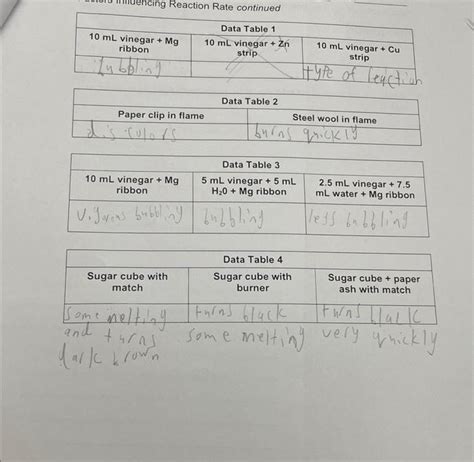 Influencing Reaction Rate continued
Data Table 1
10 mL vinegar + Mg ribbon
10 mL vinegar + Zn strip
10 mL vinegar + Cu strip
bubbling
type of reaction
Data Table 2
Paper clip in flame
Steel wool in flame
discolors
burns quickly
Data Table 3
10 mL vinegar + Mg ribbon
5 mL vinegar + 5 mL H₂0 + Mg ribbon
2.5 mL vinegar + 7.5 mL water + Mg ribbon
bubbling
bubbling
less bubbling
Data Table 4
Sugar cube with match
Sugar cube with burner
Sugar cube + paper ash with match
some melting
and turns
dark brown
turns black
some melting
turns black
very quickly